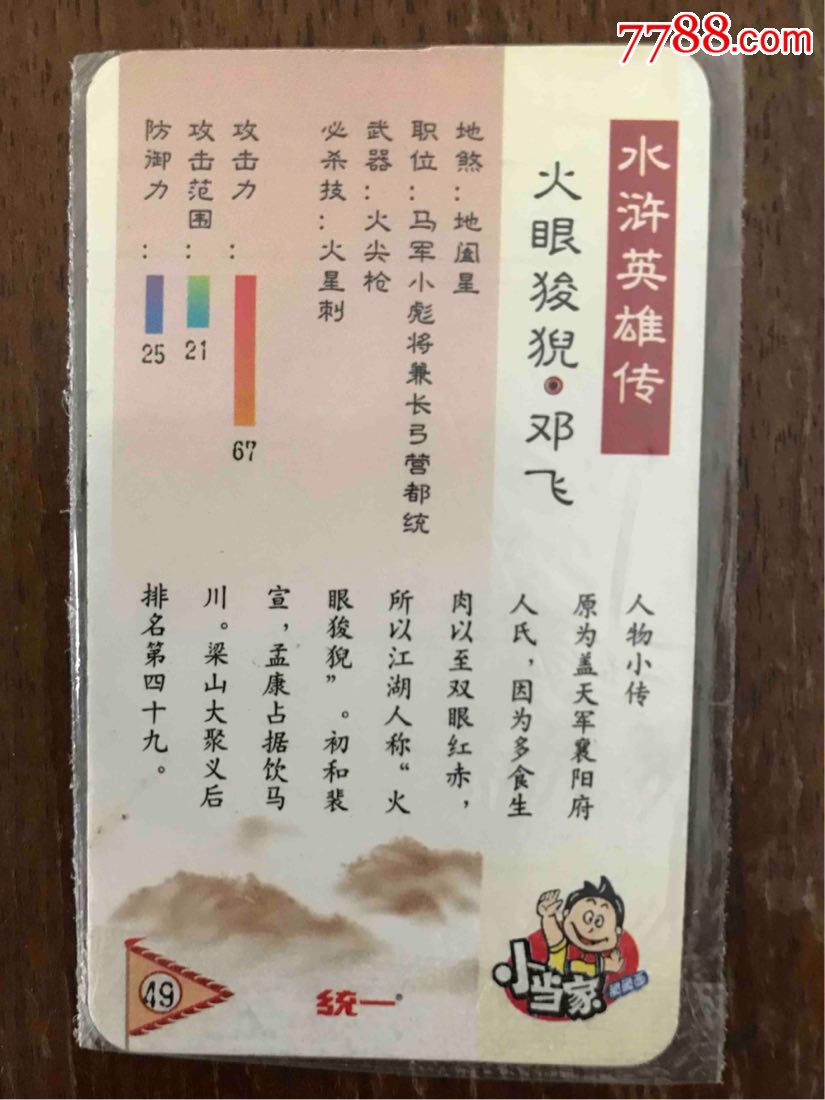 7788.com
水浒英雄传
火眼狻猊·邓飞
地煞：地阖星
职位：马军小彪将兼长弓营都统
武器：火尖枪
必杀技：火星刺
攻击力：
67
攻击范围：
21
防御力：
25
人物小传
原为盖天军襄阳府
人氏，因为多食生
肉以至双眼红赤，
所以江湖人称“火
眼狻猊”。初和裴
宣，孟康占据饮马
川。梁山大聚义后
排名第四十九。
49
统一
小当家